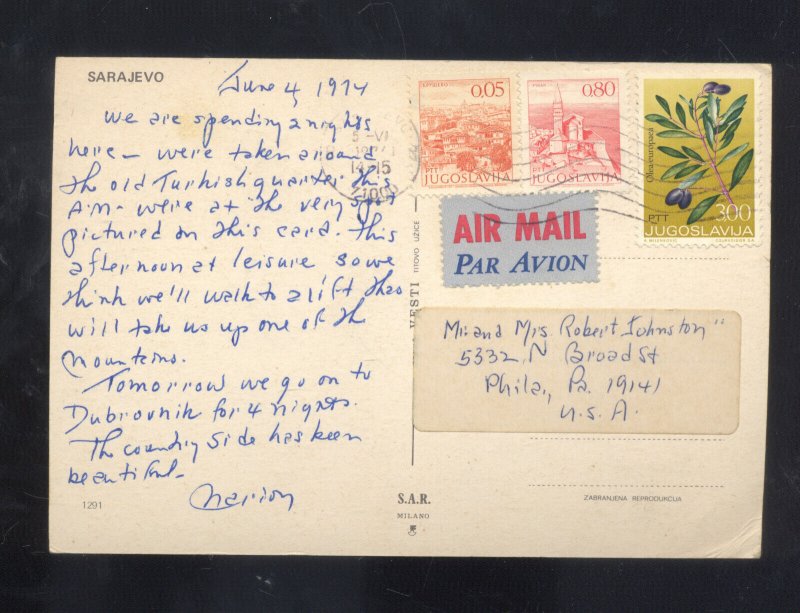 SARAJEVO
June 4, 1974
We are spending 2 nights
here - were taken around
the old Turkish quarter this
A.M. - were at the very spot
pictured on this card. This
afternoon at leisure so we
think we'll walk to a lift that
will take us up one of the
mountains.
Tomorrow we go on to
Dubrovnik for 4 nights.
The country side has been
beautiful -
Marion
1291
0.05
PTT
JUGOSLAVIJA
0.80
PTT
JUGOSLAVIJA
Olea europaea
PTT
3.00
JUGOSLAVIJA
14-15
71000
AIR MAIL
PAR AVION
VESTI TITOVO UŽICE
Mr. and Mrs. Robert Johnston
5332 N Broad St
Phila., Pa. 19141
U.S.A.
S.A.R.
MILANO
ZABRANJENA REPRODUKCIJA